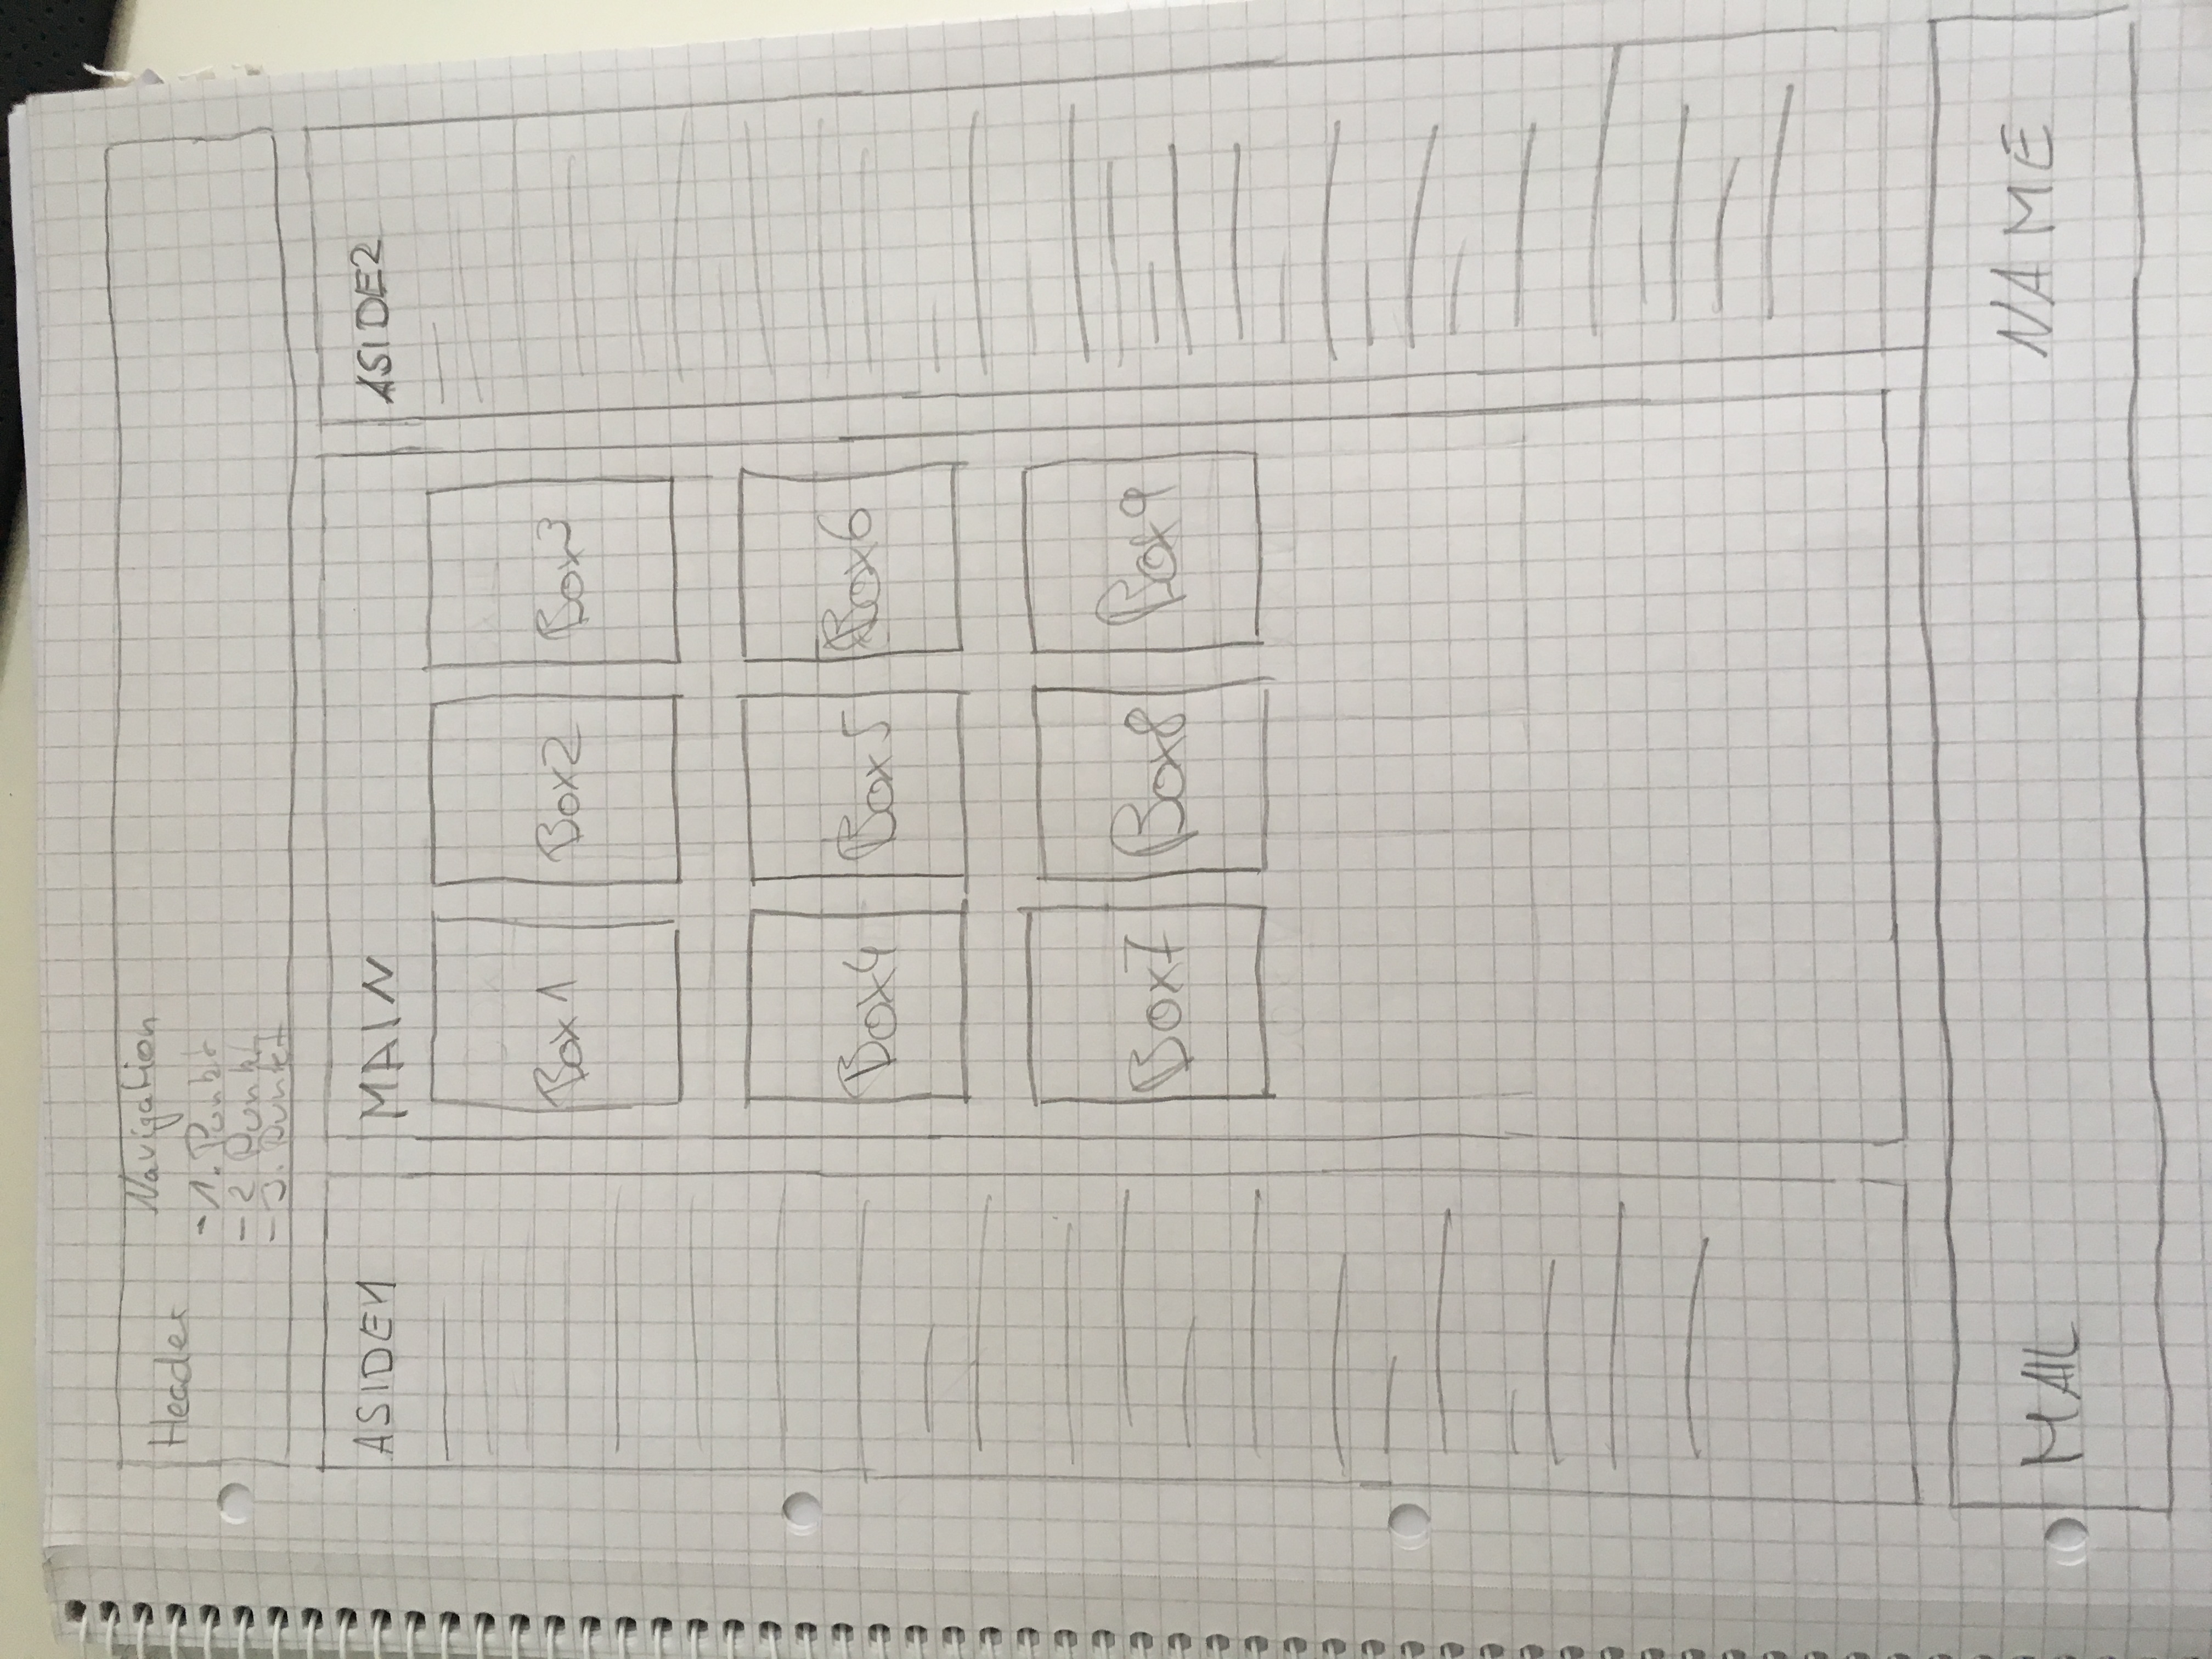 Header
Navigation
- 1. Punkt
- 2 Punkt
- 3. Punkt
ASIDE1
MAIN
ASIDE2
Box 1
Box2
Box3
Box4
Box5
Box6
Box7
Box8
Box9
MAIL
NAME